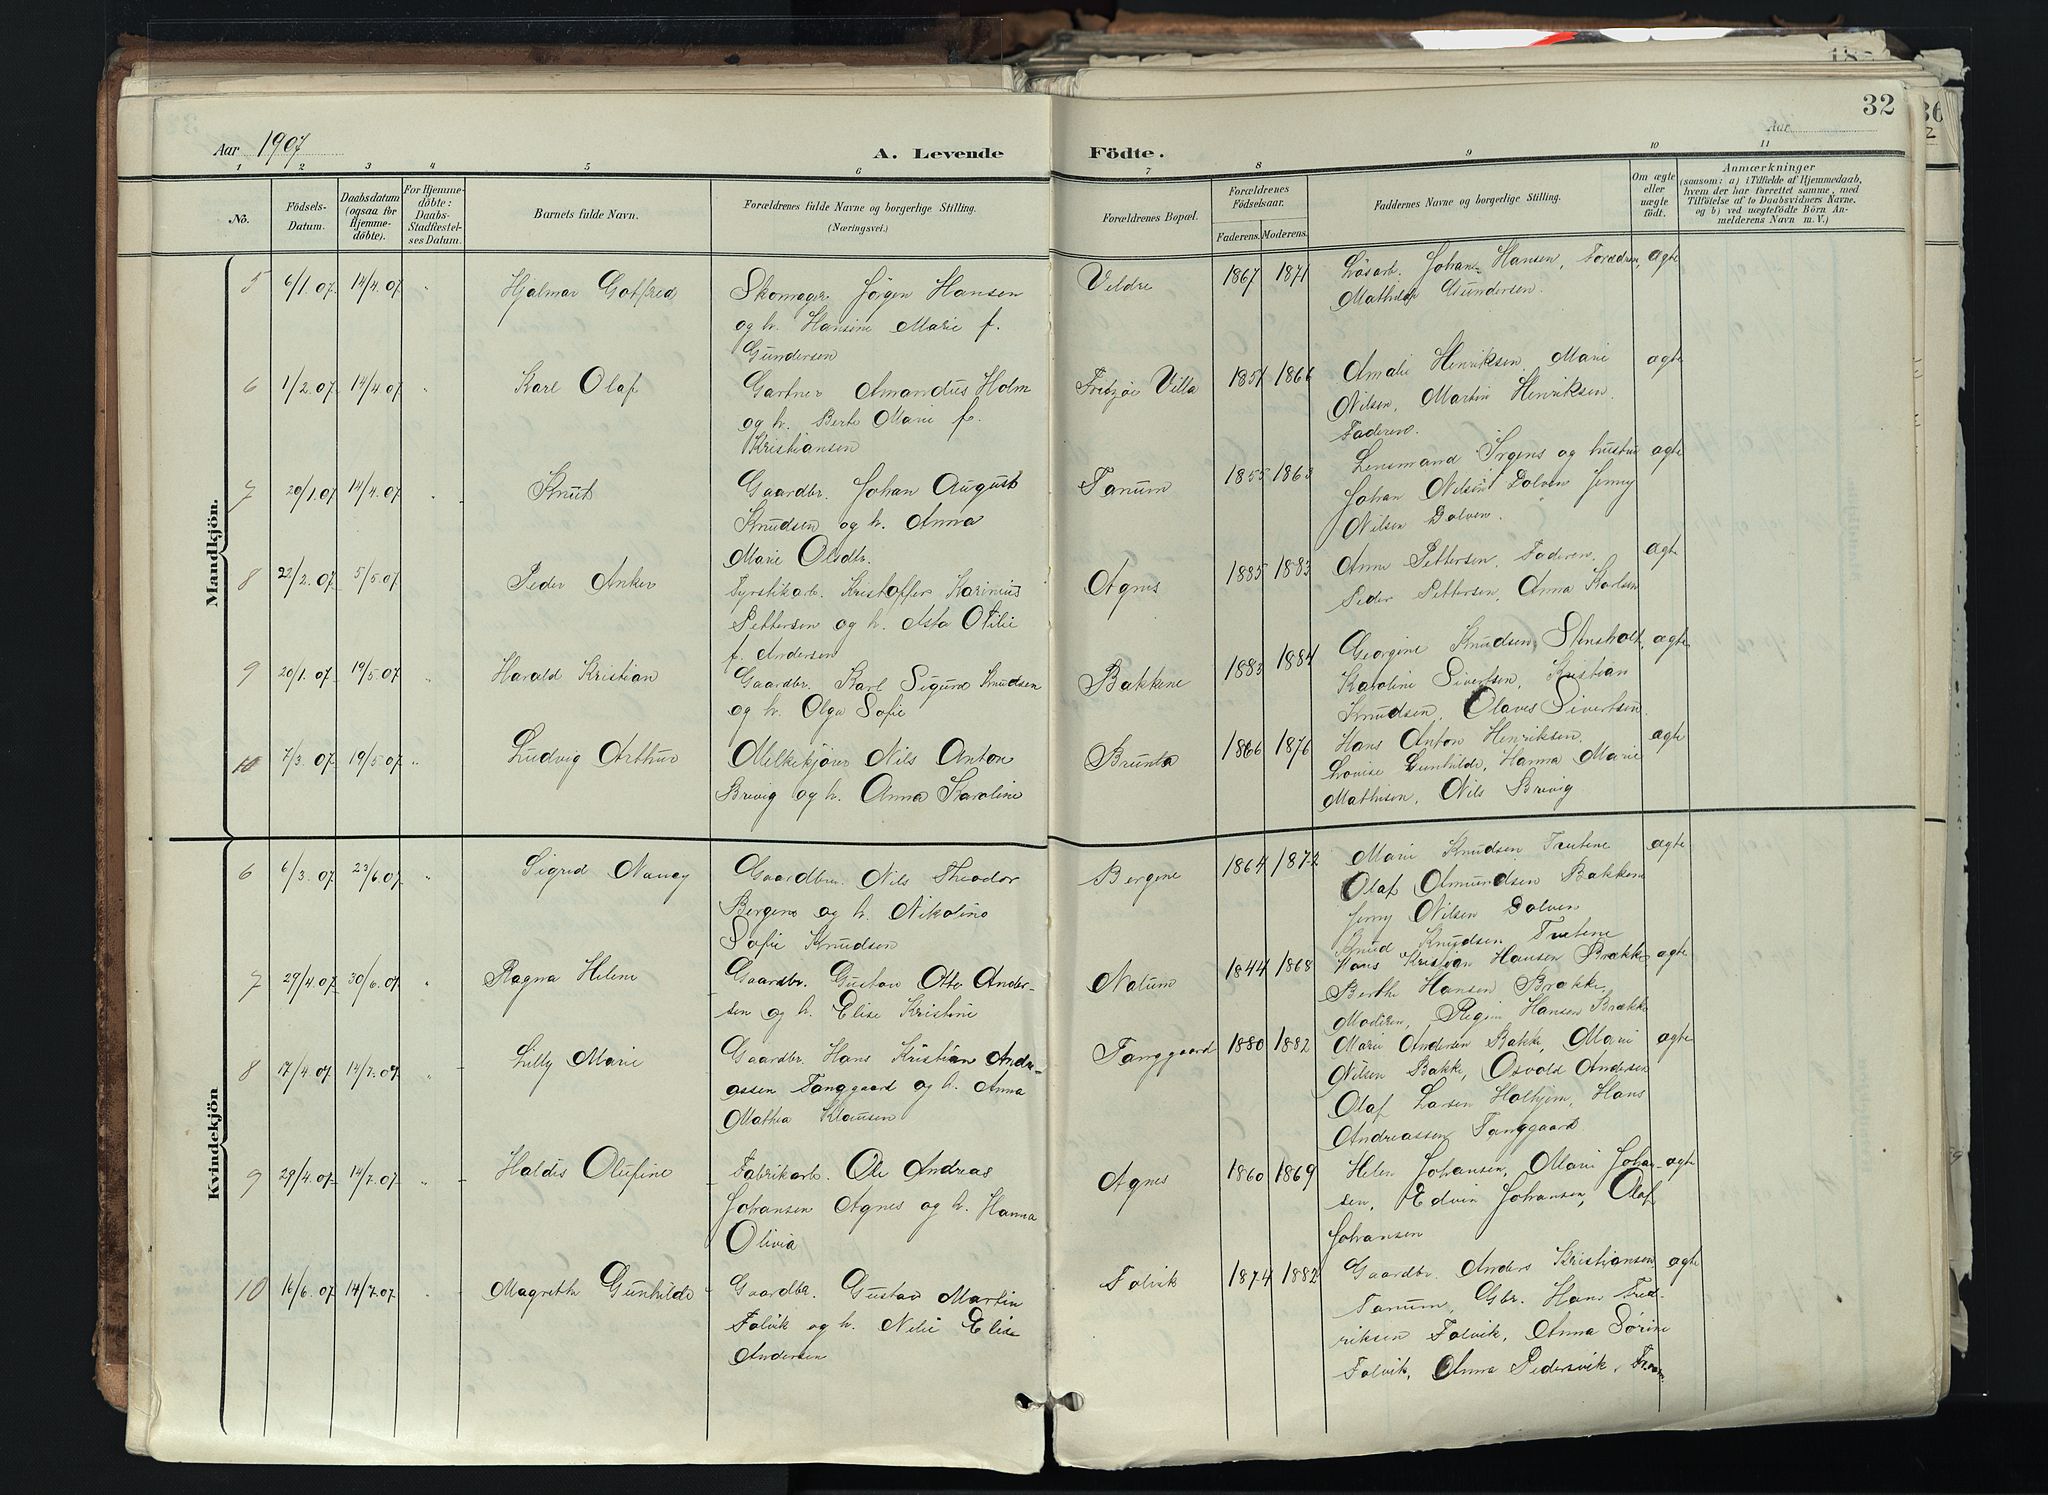 32
Aar 1907 A. Levende Födte. Aar
1 2 3 4 5 6 7 8 9 10 11
No. Födsels-Datum. Daabsdatum (ogsaa for Hjemme-döbte). For Hjemme-döbte: Daabs-Stadfæstel-ses Datum. Barnets fulde Navn. Forældrenes fulde Navne og borgerlige Stilling. (Næringsvei.) Forældrenes Bopæl. Forældrenes Födselsaar. Faderens. Moderens. Faddernes Navne og borgerlige Stilling. Om ægte eller uægte födt. Anmærkninger (saasom: a) i Tilfælde af Hjemmedaab, hvem der har forrettet samme, med Tilföielse af to Daabsvidners Navne, og b) ved uægtefödte Börn An-melderens Navn m. V.)
Mandkjön.
5 6/1.07. 14/4.07 " Hjalmar Gotfred Skomager Jörgen Hansen Veldre 1867 1871 Lösarb. Johan Hansen, Forældren, ægte
og h. Hansine Marie f. Mathilde Gundersen.
Gundersen
6 1/2.07. 14/4.07 " Karl Olaf Gartner Amandus Holm Fritzöe Villa 1851 1866 Amalie Henriksen, Marie ægte
og h. Berte Marie f. Nilsen, Martin Henriksen.
Kristiansen Faderen.
7 20/1.07 14/4.07 Knut Gaardbr. Johan August Tanum 1855 1863 Lensmand Irgens og hustru ægte
Knudsen og h. Anna Johan Nilsen Dolven Jenny
Marie Olsdtr. Nilsen Dolven.
8 22/2.07 5/5.07 Peder Anker Fyrstikarb. Kristoffer Karinius Agnes 1885 1883 Anne Pettersen, Faderen. ægte
Pettersen og h. Asta Otilie Peder Pettersen, Anna Karlsen
f. Andersen
9 20/1.07 19/5.07 " Harald Kristian Gaardbr. Karl Sigurd Knudsen Bakkene 1883 1884 Georgine Knudsen, Stensholt, ægte
og h. Olga Sofie Karoline Sivertsen, Kristian
Knudsen, Olaves Sivertsen.
10 7/3.07 19/5.07 " Ludvig Arthur Melkekjörer Nils Anton Brunla 1866 1876 Hans Anton Henriksen. ægte
Brevig og h. Anna Karoline Lovise Gunhilde, Hanna Marie
Mathisen, Nils Brevig
Kvindekjön
6 6/3.07 23/6.07 " Sigrid Nancy Gaardbr. Nils Theodor Bergene 1864 1872 Marie Knudsen Trutene ægte
Bergene og h. Nikoline Olaf Amundsen Bakkene
Sofie Knudsen Jenny Nilsen Dolven
Knud Knudsen Trutene
7 29/4.07 30/6.07 " Ragna Helene Gaardbr. Gustav Otto Ander- Nalum 1844 1868 Hans Kristian Hansen Brække, ægte
sen og h. Elise Kristine Berthe Hansen Brække,
Moderen, Regine Hansen Brække
8 17/4.07 14/7.07 " Lilly Marie Gaardbr. Hans Kristian Andre- Tanggaard 1880 1882 Marie Andersen Bakke, Marie ægte
assen Tanggaard og h. Anna Nilsen Bakke, Osvald Andersen
Mathea Klausen Olaf Larsen Holhjem, Hans
Andreassen Tanggaard.
9 29/4.07 14/7.07 " Haldis Olufine Fabrikarb. Ole Andreas Agnes 1860 1869 Helen Johansen, Marie Johan- ægte
Johansen Agnes og h. Hanna sen, Edvin Johansen, Olaf
Olivia Johansen
10 16/6.07 14/7.07 Magreth Gunhilde Gaardbr. Gustav Martin Folvik 1874 1882 Gaardbr. Anders Kristiansen ægte
Folvik og h. Nelie Elise Tanum, Gbr. Hans Fred-
Andersen riksen Folvik, Anna Sörine
Folvik, Anna Pedersvik,